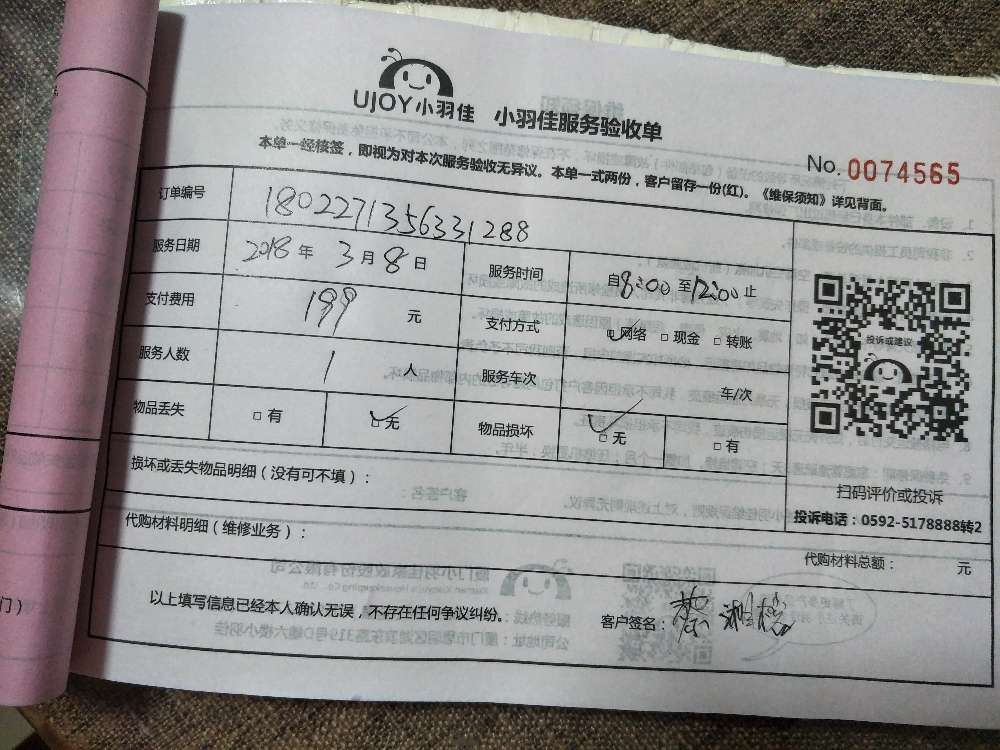 UJOY小羽佳 小羽佳服务验收单
No. 0074565
本单一经核签，即视为对本次服务验收无异议。本单一式两份，客户留存一份(红)。《维保须知》详见背面。
订单编号 1802271356331288
服务日期 2018 年 3 月 8 日 服务时间 自 8:00 至 12:00 止
支付费用 199 元 支付方式 网络 □ 现金 □ 转账
服务人数 1 人 服务车次 车/次
物品丢失 □ 有 □ 无 物品损坏 □ 无 □ 有
投诉或建议
扫码评价或投诉
投诉电话：0592-5178888转2
损坏或丢失物品明细（没有可不填）：
代购材料明细（维修业务）：
代购材料总额： 元
以上填写信息已经本人确认无误，不存在任何争议纠纷。 客户签名：
门）